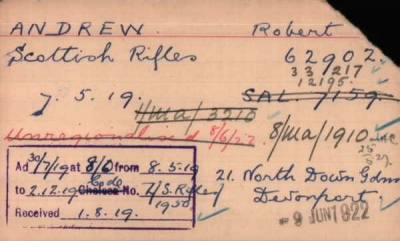 ANDREW. Robert
Scottish Rifles 62902.
33217
12195.
7. 5. 19. SAL/7159
1/MA/3210
Unregionalised 8/6/22 8/MA/1910
Ad 30/7/19 at 8/0 from 8.5.19
to 2.12.19 Chelsea No. 2/S. Rifles/
1950
Received 1.8.19.
21. North Down Gdns
Devonport.
-9 JUN 1922